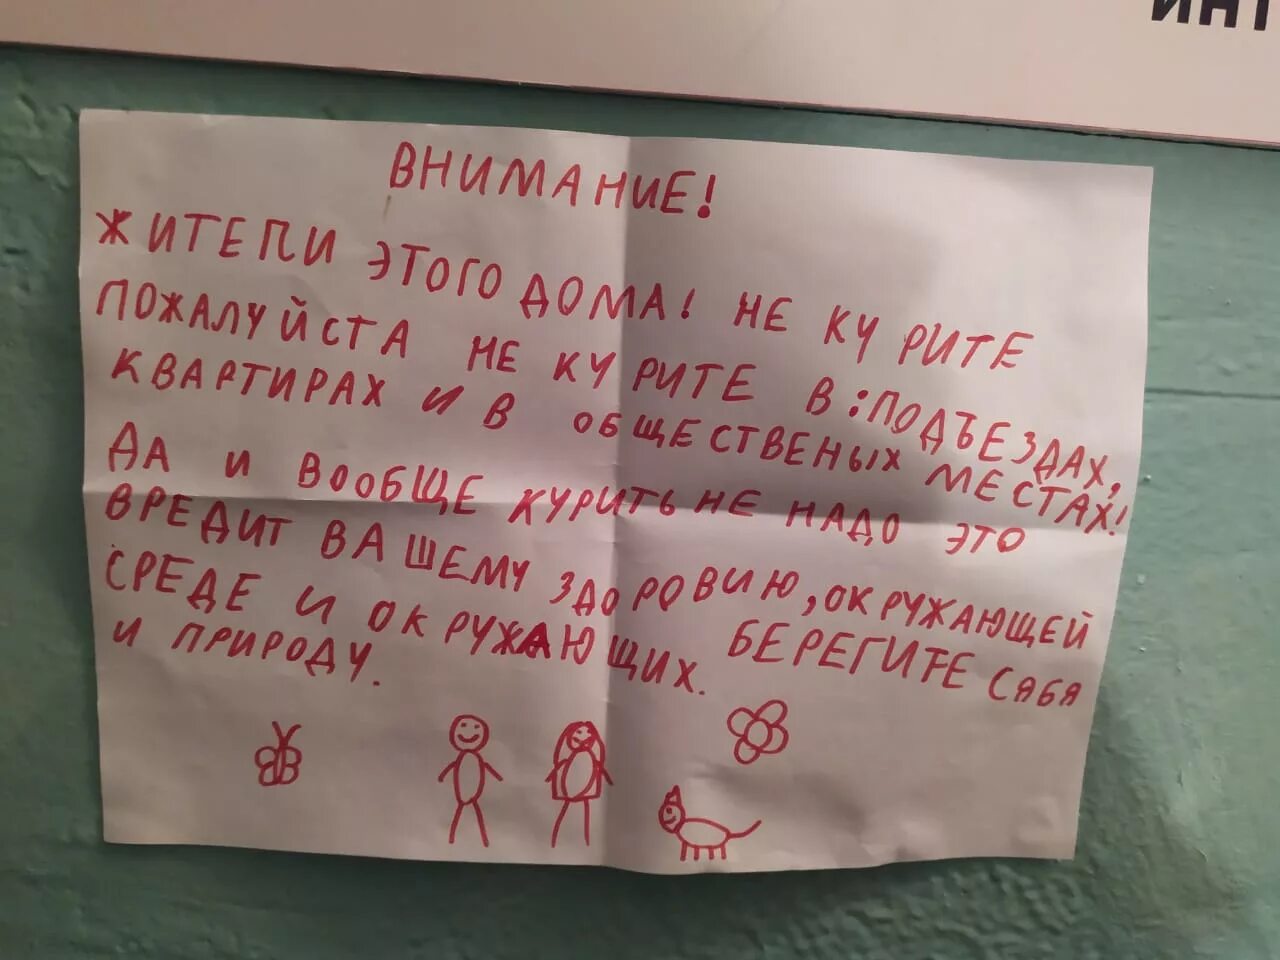 ИНТ
ВНИМАНИЕ!
ЖИТЕЛИ ЭТОГО ДОМА! НЕ КУРИТЕ
ПОЖАЛУЙСТА НЕ КУРИТЕ В:ПОДЪЕЗДАХ,
КВАРТИРАХ И И В ОБЩЕСТВЕНЫХ МЕСТАХ!
ДА И ВООБЩЕ КУРИТЬ НЕ НАДО ЭТО
ВРЕДИТ ВАШЕМУ ЗДОРОВИЮ, ОКРУЖАЮЩЕЙ
СРЕДЕ И ОКРУЖАЮЩИХ. БЕРЕГИТЕ СЯБЯ
И ПРИРОДУ.